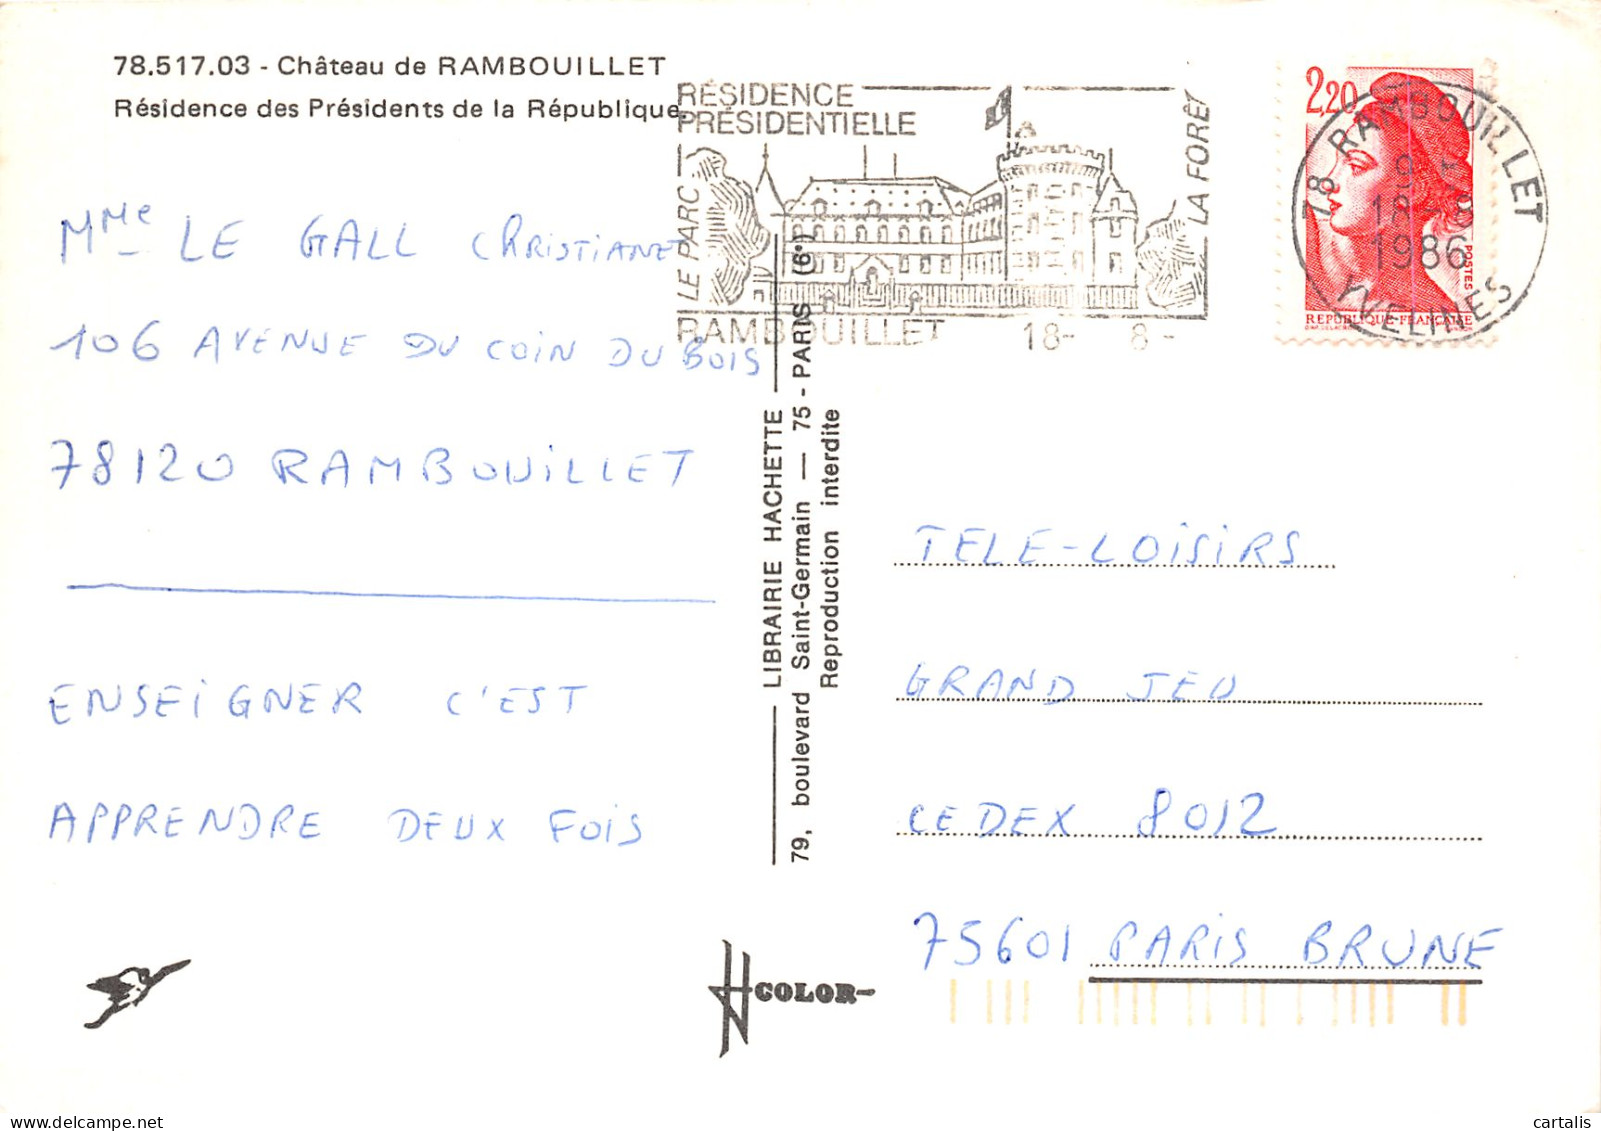 78.517.03 - Château de RAMBOUILLET
Résidence des Présidents de la République.
RÉSIDENCE
PRÉSIDENTIELLE
LE PARC
LA FORÊT
RAMBOUILLET 18- 8-
2,20
POSTES
REPUBLIQUE-FRANÇAISE
78 RAMBOUILLET
18
1986
YVELINES
MMe LE GALL CHRISTIANE
106 AVENUE DU COIN DU BOIS
78120 RAMBOUILLET
ENSEIGNER C'EST
APPRENDRE DEUX FOIS
LIBRAIRIE HACHETTE
79, boulevard Saint-Germain — 75 - PARIS (6e)
Reproduction interdite
TELE-LOISIRS
GRAND JEU
CEDEX 8012
75601 PARIS BRUNE
COLOR
cartalis
delcampe.net